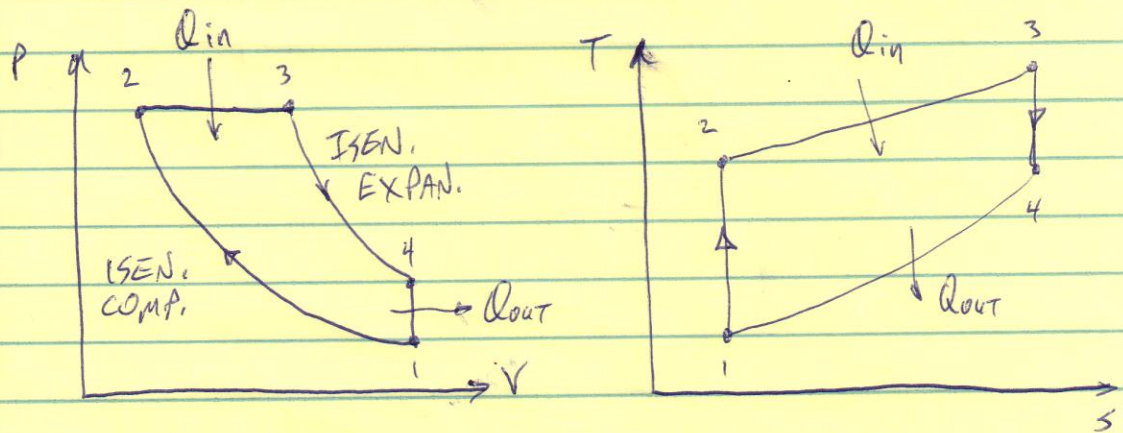 P
Qin
2
3
ISEN.
EXPAN.
4
ISEN.
COMP.
QOUT
1
V
T
Qin
3
2
4
QOUT
1
s